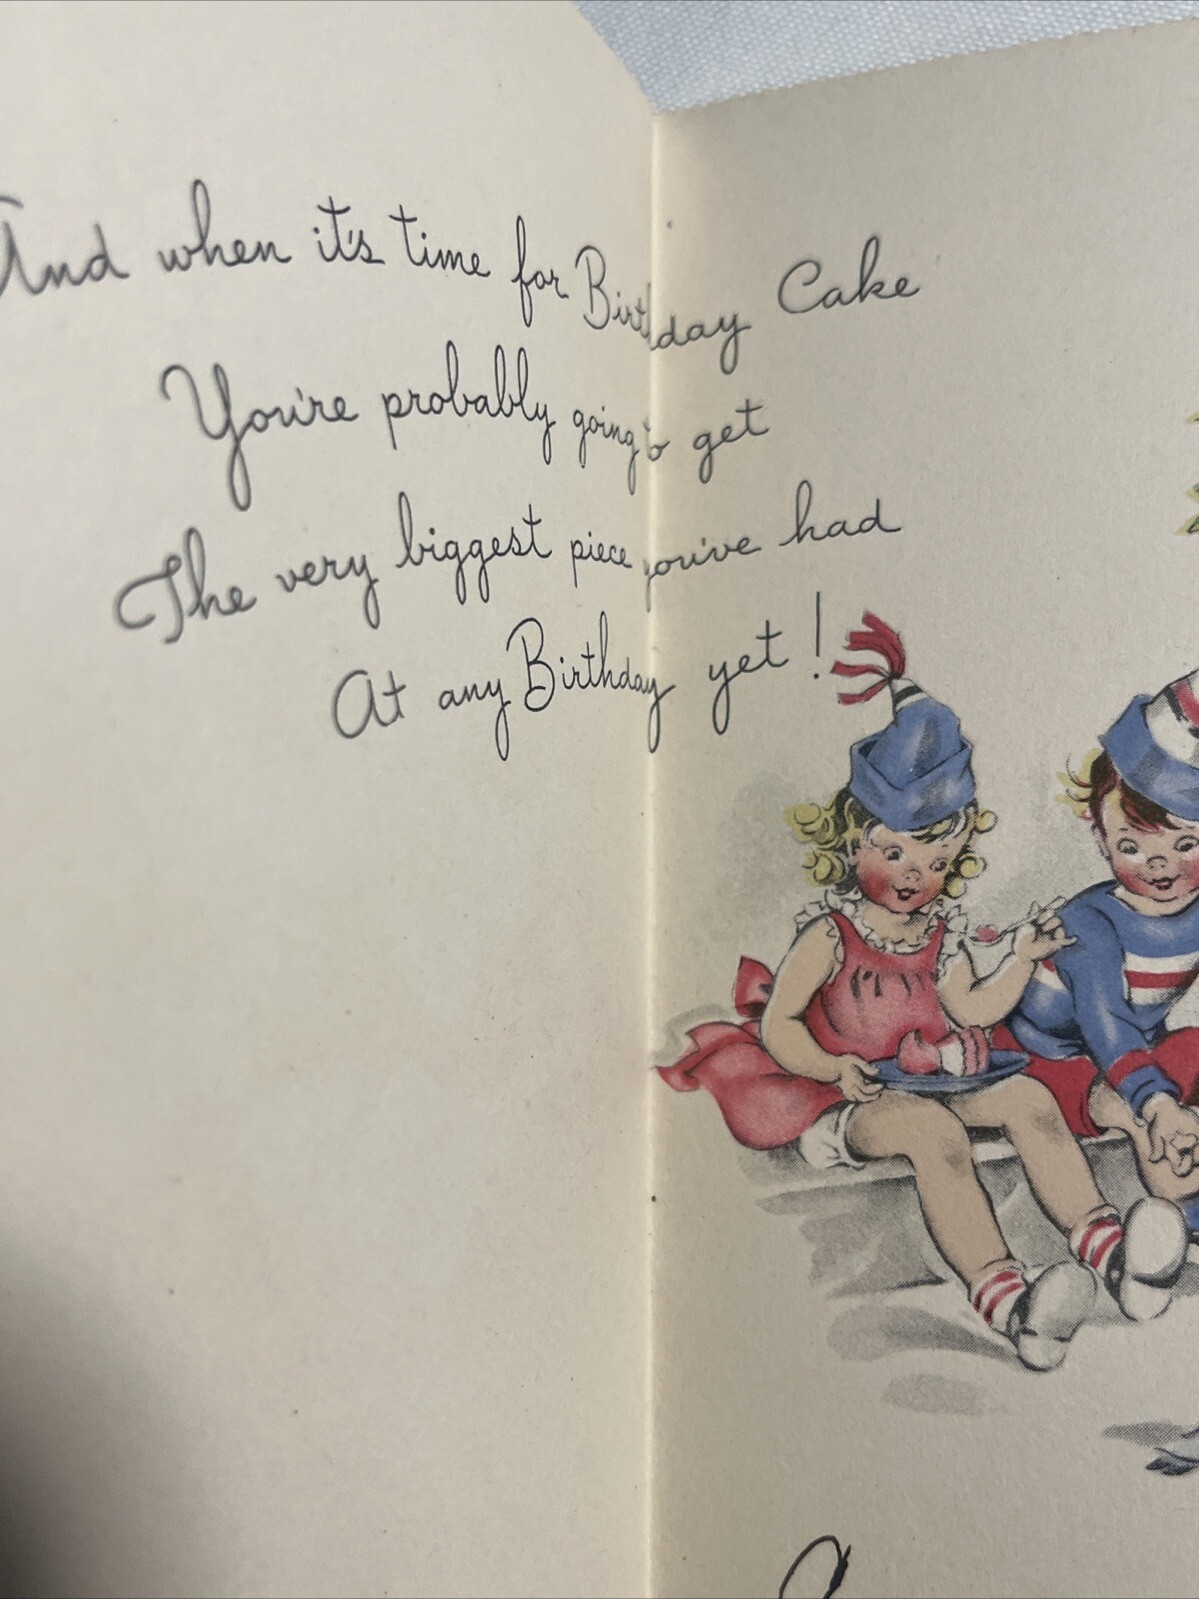 And when it's time for Birthday Cake
You're probably going to get
The very biggest piece you've had
At any Birthday yet!